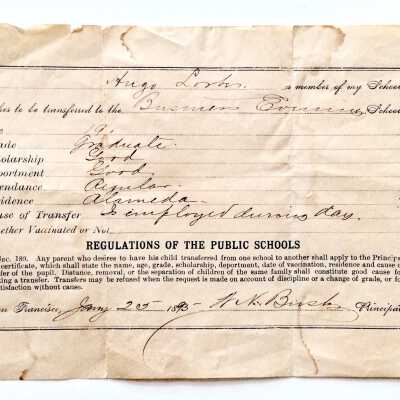 Hugo a member of my School
hes to be transferred to the Business Evening School
e
ade Graduate.
holarship Good
portment Good.
tendance Regular
sidence Alameda.
use of Transfer Is employed during day.
hether Vaccinated or Not
REGULATIONS OF THE PUBLIC SCHOOLS
Sec. 189. Any parent who desires to have his child transferred from one school to another shall apply to the Princip
certificate, which shall state the name, age, grade, scholarship, department, date of vaccination, residence and cause o
sfer of the pupil. Distance, removal, or the separation of children of the same family shall constitute good cause fo
king a transfer. Transfers may be refused when the request is made on account of discipline or a change of grade, or fo
satisfaction without cause.
an Francisco, Jany 25 1895 Principa